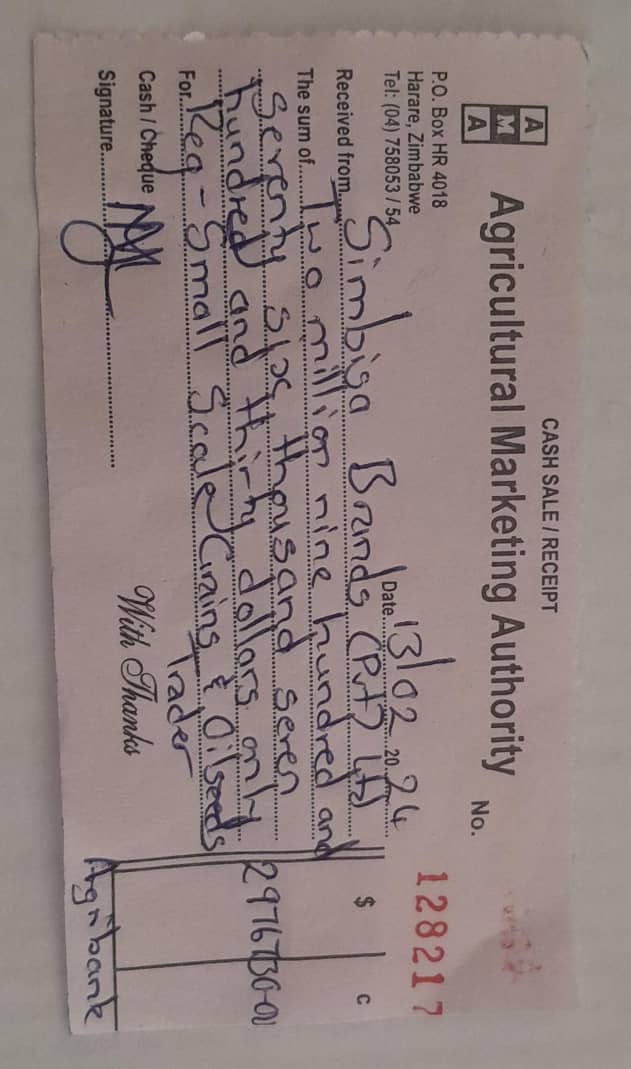 CASH SALE / RECEIPT
A
M
A
Agricultural Marketing Authority
No. 128217
P.O. Box HR 4018
Harare, Zimbabwe
Tel: (04) 758053 / 54
Date 13/02 20 24
Received from Simbisa Brands (Pvt) Ltd
The sum of Two million nine hundred and
seventy six thousand seven
hundred and thirty dollars only
For Reg - Small Scale Grains & Oilseeds
Trader
$ c
2976730-00
Cash / Cheque
Signature
With Thanks
Agribank